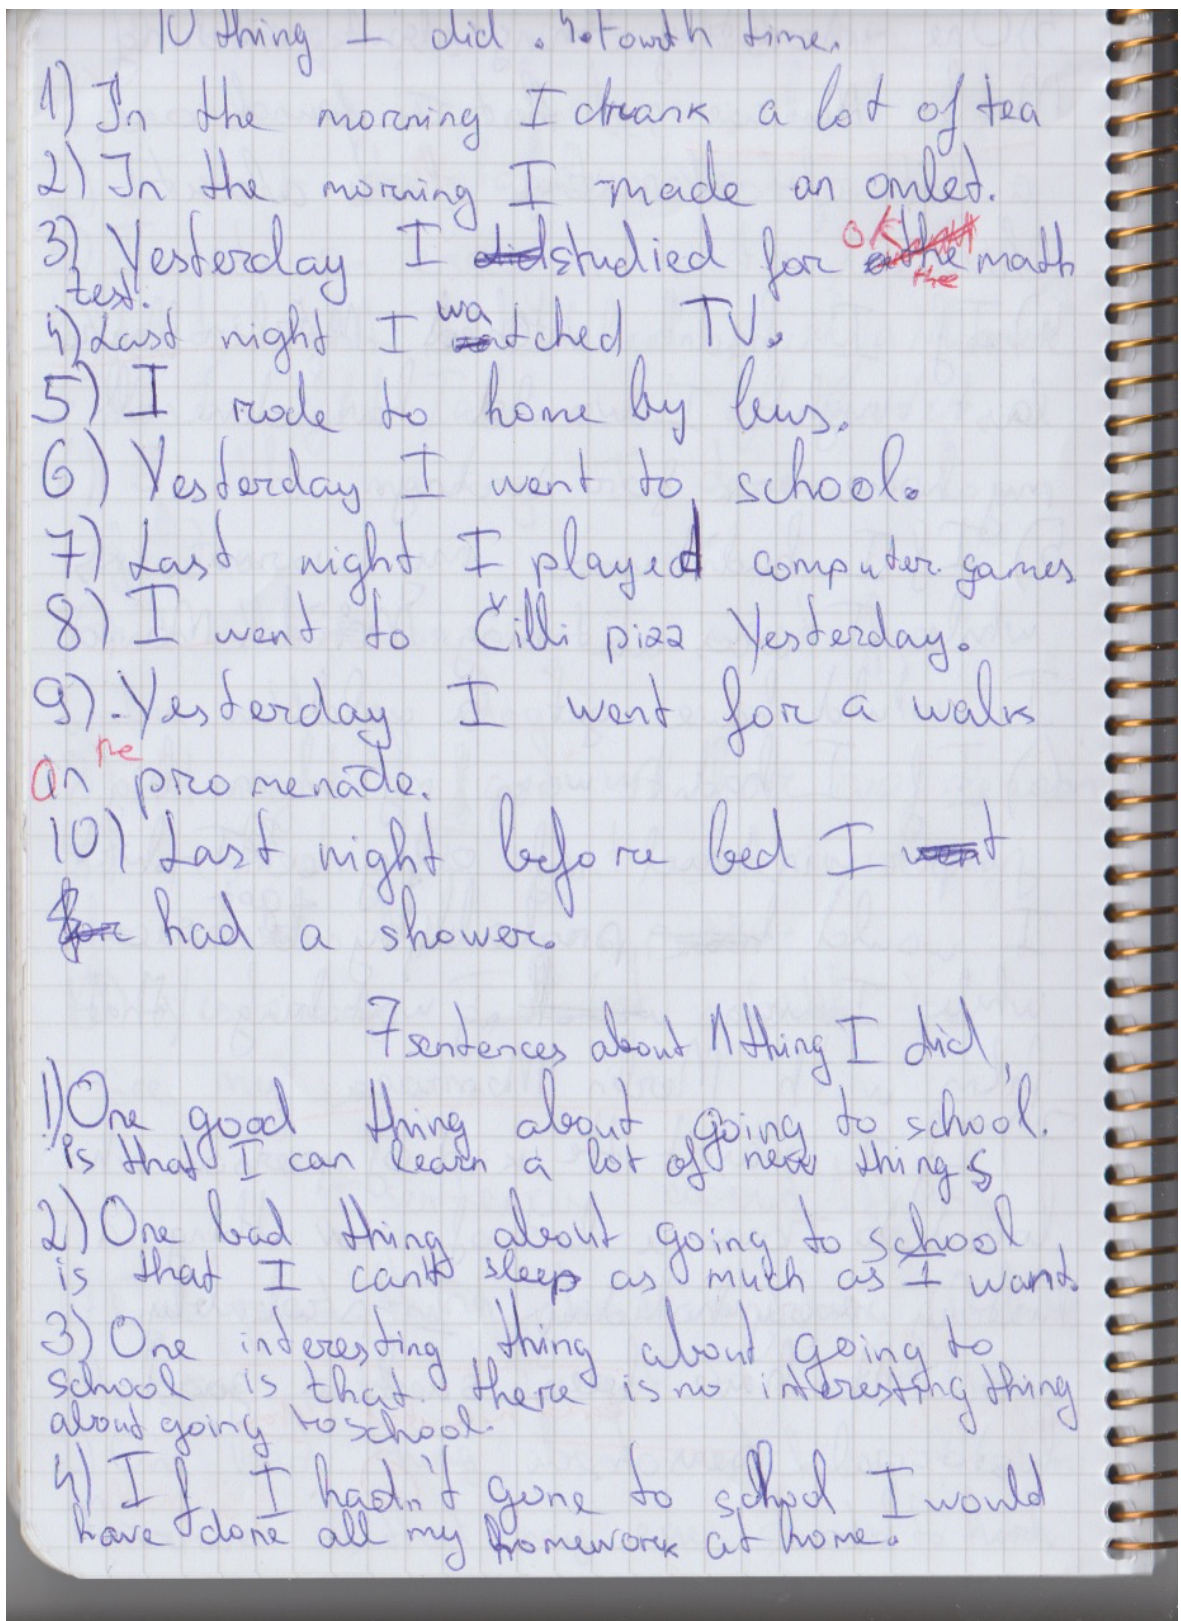 10 thing I did . 4. Fourth time.
1) In the morning I drank a lot of tea
2) In the morning I made an omlet.
3) Yesterday I did studied for the math
the
test.
4) Last night I watched TV.
5) I rode to home by bus.
6) Yesterday I went to school.
7) Last night I played computer games
8) I went to Čilli pizz Yesterday.
9). Yesterday I went for a walk
on the promenāde.
10) Last night before bed I went
for had a shower.
7 sentences about 1 thing I did,
1) One good thing about going to school.
is that I can learn a lot of new things
2) One bad thing about going to school
is that I cant sleep as much as I want.
3) One interesting thing about going to
school is that there is no interesting thing
about going to school.
4) If I hadn't gone to school I would
have done all my homework at home.